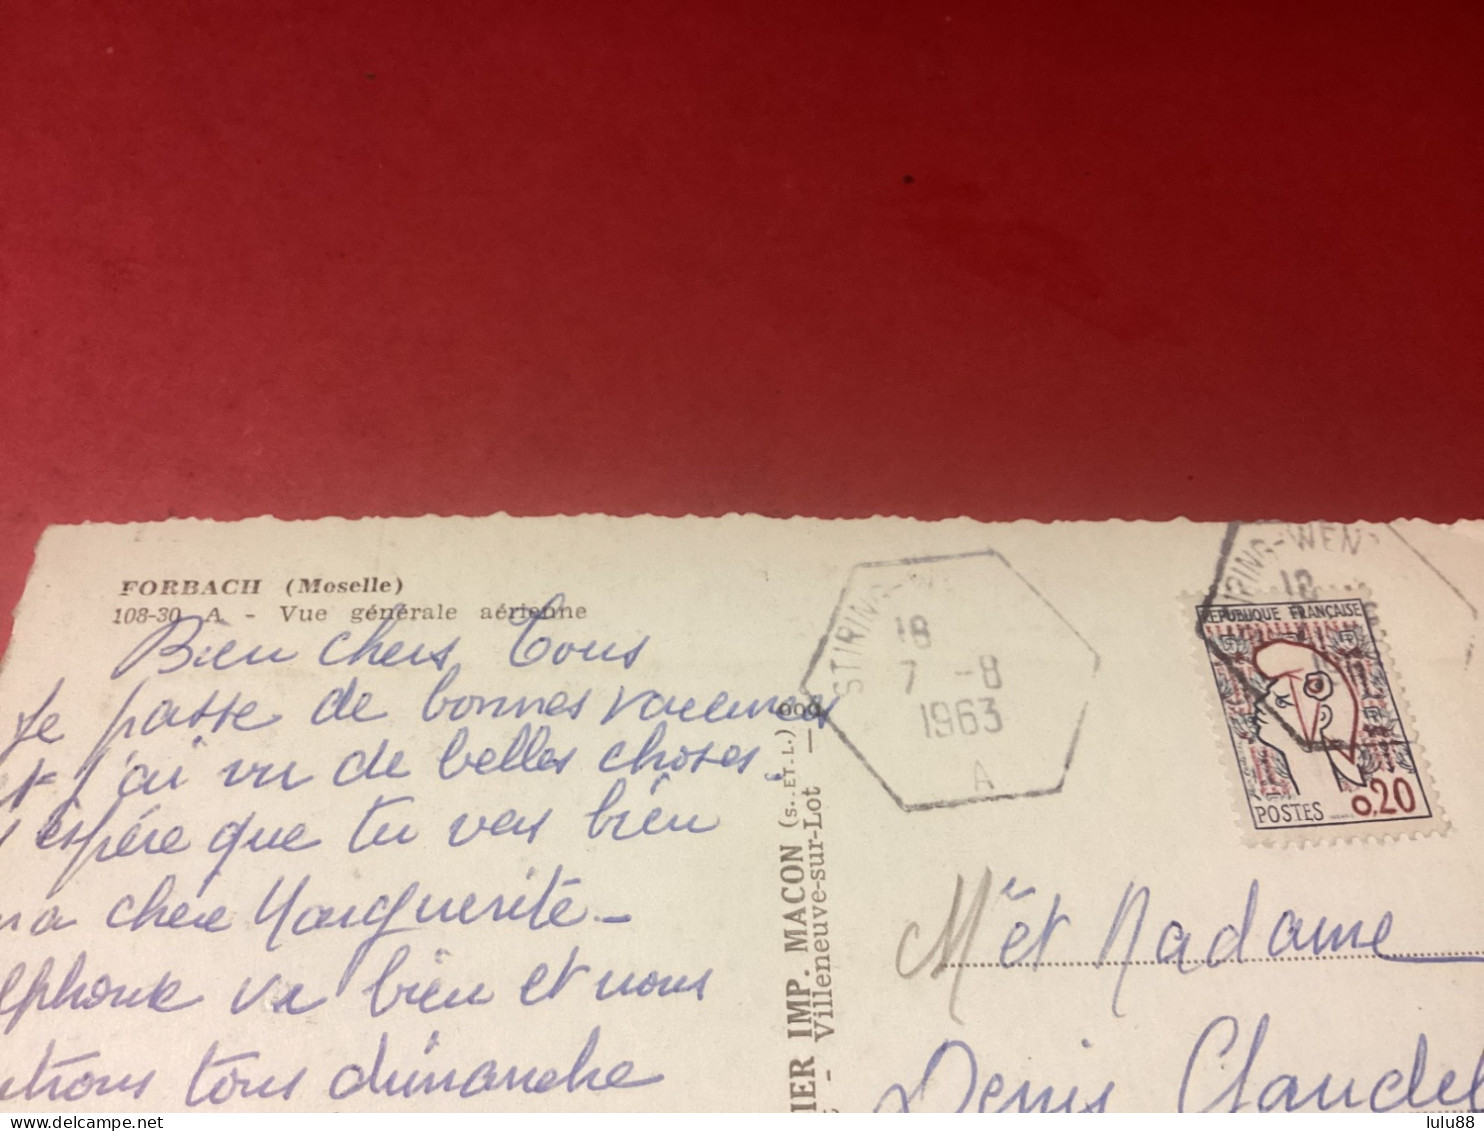 FORBACH (Moselle)
108-30 A - Vue générale aérienne
Bien chers Tous
Je passe de bonnes vacances
et j'ai vu de belles choses.
j'espère que tu vas bien
ma chère Marguerite -
Alphonse va bien et nous
rentrons tous dimanche
IMP. MACON (S.-ET-L.)
Villeneuve-sur-Lot —
STIRING-WEN
18
7 -8
1963
A
STIRING-WEN
18
REPUBLIQUE FRANÇAISE
POSTES 0,20
Mr et Madame
Denis Claudel
lulu88